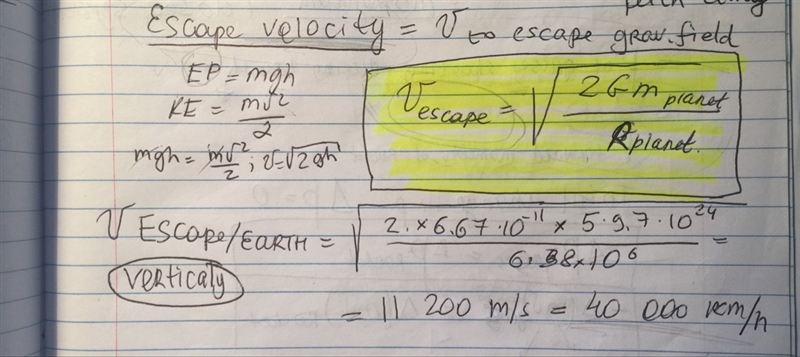 path using
Escape velocity = V to escape grav. field
EP = mgh
KE = mv²/2
mgh = mv²/2 ; v = √2gh
V escape = √(2 G m planet / R planet.)
V ESCAPE/EARTH = √(2. × 6.67 · 10⁻¹¹ × 5.9.7 · 10²⁴ / 6.38 × 10⁶) =
verticaly
= 11 200 m/s = 40 000 km/h